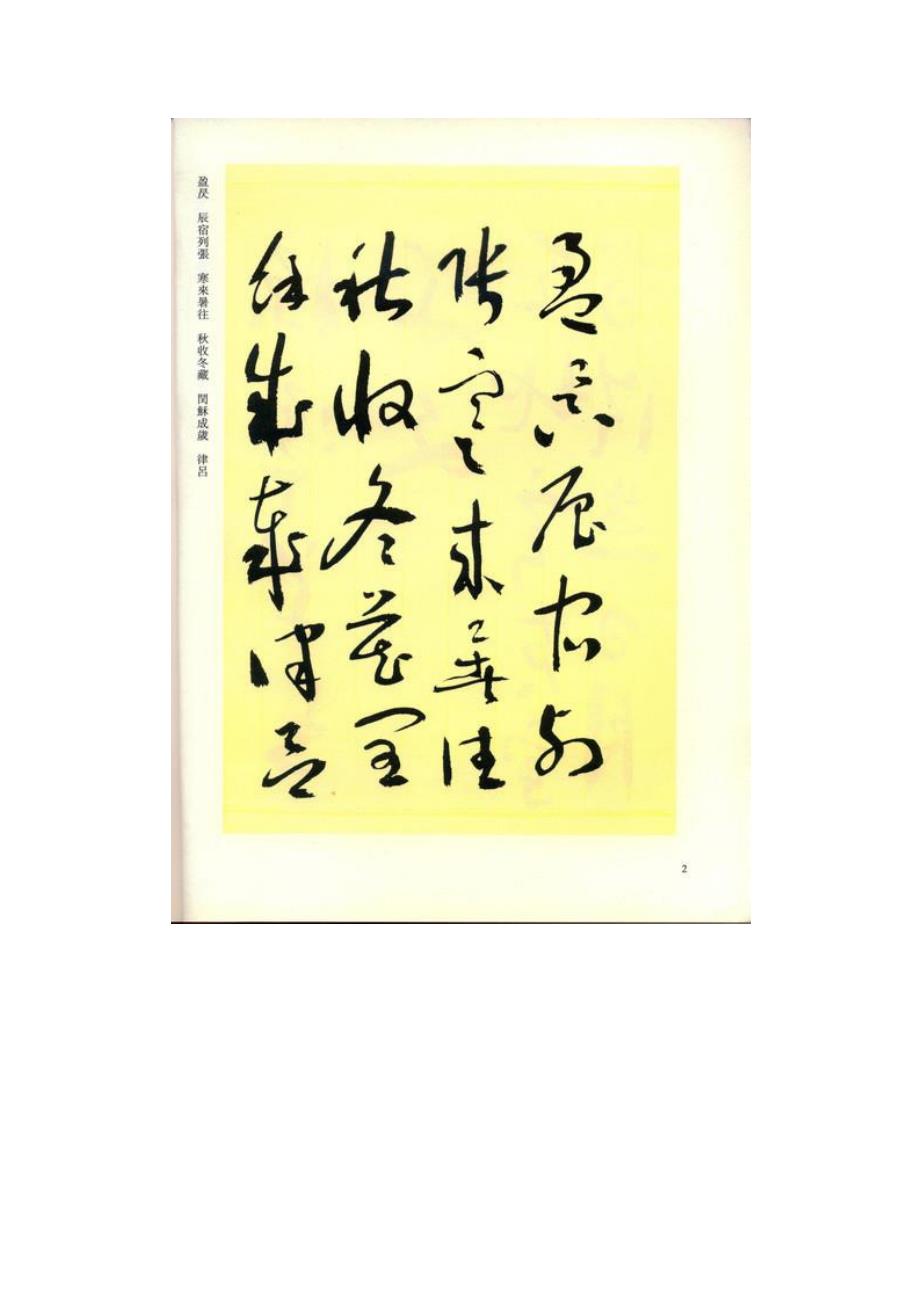 盈昃辰宿列
張寒來暑往
秋收冬藏閏
餘成歲律呂
盈昃 辰宿列張 寒來暑往 秋收冬藏 閏穌成歲 律呂
2